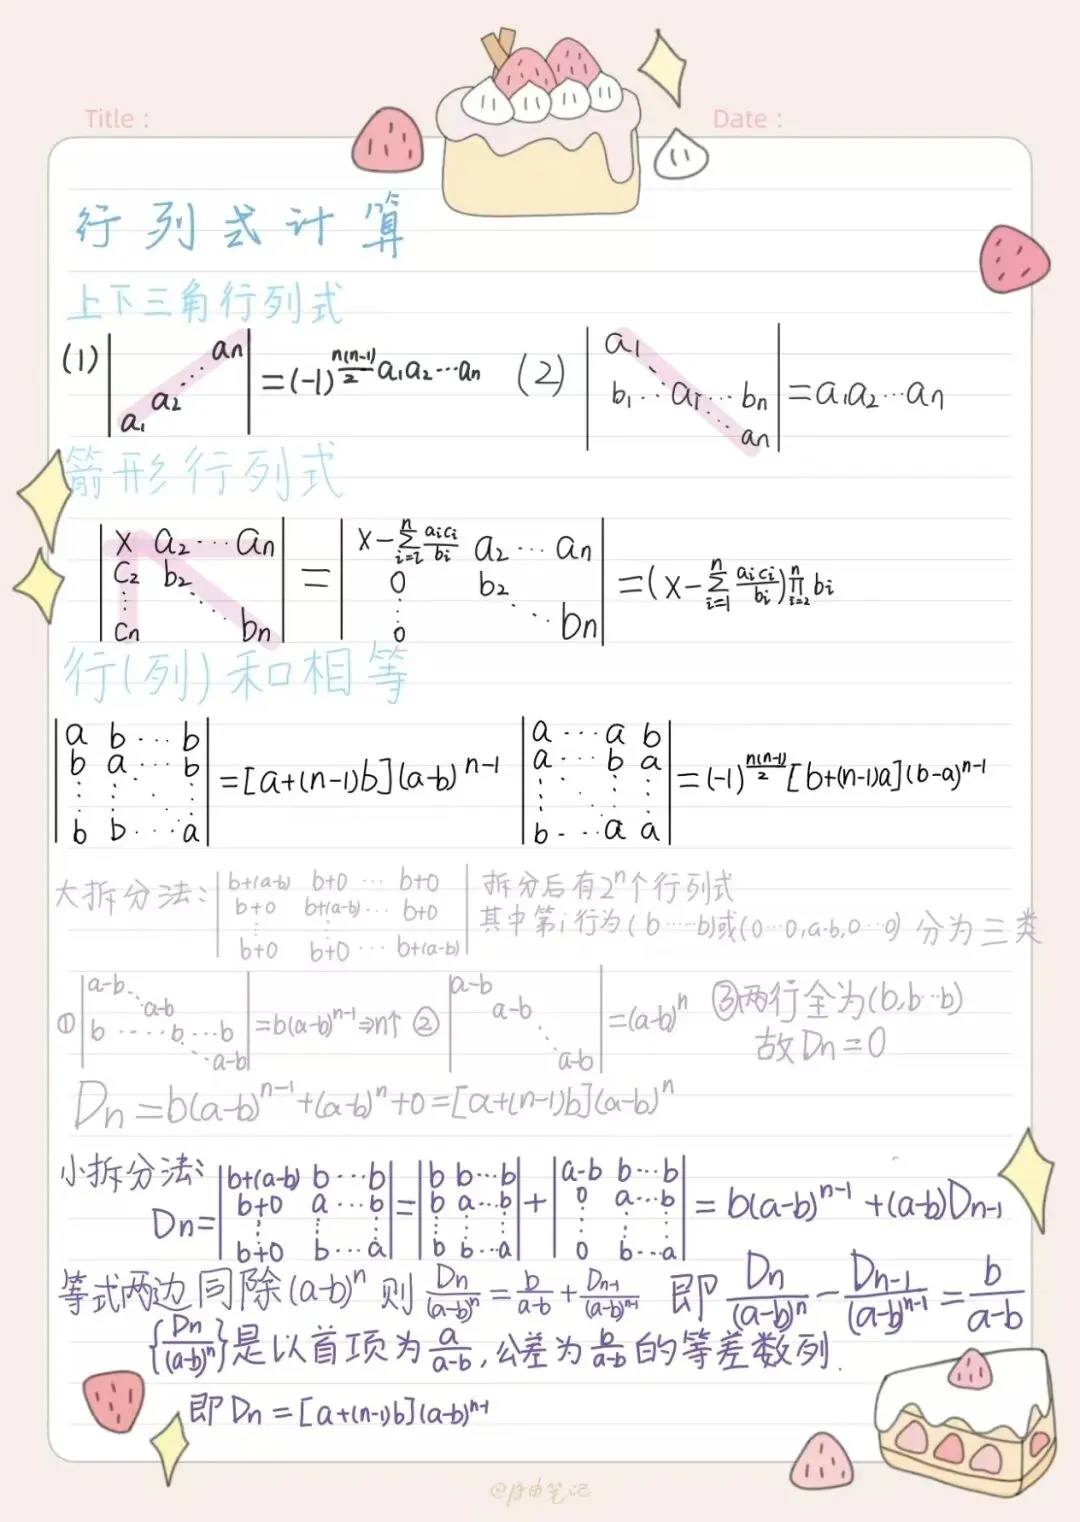 Title :
Date :
行列式计算
上下三角行列式
(1) | an ⋰ a2 a1 | =(-1)^{n(n-1)/2} a1a2⋯an (2) | a1 ⋱ b1 ⋯ ai ⋯ bn ⋱ an | =a1a2⋯an
箭形行列式
| x a2 ⋯ an |
| c2 b2 |
| ⋮ ⋱ |
| cn bn |
= | x-∑_{i=2}^{n} aici/bi a2 ⋯ an |
| 0 b2 |
| ⋮ ⋱ |
| 0 bn |
=(x-∑_{i=1}^{n} aici/bi)∏_{i=2}^{n} bi
行(列)和相等
| a b ⋯ b |
| b a ⋯ b |
| ⋮ ⋮ ⋱ ⋮ |
| b b ⋯ a |
=[a+(n-1)b](a-b)^{n-1}
| a ⋯ a b |
| a ⋯ b a |
| ⋮ ⋰ ⋮ ⋮ |
| b ⋯ a a |
=(-1)^{n(n-1)/2}[b+(n-1)a](b-a)^{n-1}
大拆分法:
| b+(a-b) b+0 ⋯ b+0 |
| b+0 b+(a-b) ⋯ b+0 |
| ⋮ ⋮ |
| b+0 b+0 ⋯ b+(a-b) |
拆分后有2^n个行列式
其中第i行为(b⋯⋯b)或(0⋯0,a-b,0⋯0) 分为三类
① | a-b ⋱ a-b b ⋯ b ⋯ b ⋱ a-b | =b(a-b)^{n-1}⇒n个 ② | a-b a-b ⋱ a-b | =(a-b)^n ③两行全为(b,b⋯b)
故Dn=0
Dn=b(a-b)^{n-1}+(a-b)^n+0=[a+(n-1)b](a-b)^n
小拆分法:
Dn=
| b+(a-b) b ⋯ b |
| b+0 a ⋯ b |
| ⋮ ⋮ ⋮ |
| b+0 b ⋯ a |
=
| b b ⋯ b |
| b a ⋯ b |
| ⋮ ⋮ ⋮ |
| b b ⋯ a |
+
| a-b b ⋯ b |
| 0 a ⋯ b |
| ⋮ ⋮ ⋮ |
| 0 b ⋯ a |
= b(a-b)^{n-1}+(a-b)Dn-1
等式两边同除(a-b)^n 则 Dn/(a-b)^n=b/(a-b)+Dn-1/(a-b)^{n-1} 即 Dn/(a-b)^n-Dn-1/(a-b)^{n-1}=b/(a-b)
{Dn/(a-b)^n}是以首项为a/(a-b),公差为b/(a-b)的等差数列.
即Dn=[a+(n-1)b](a-b)^{n-1}